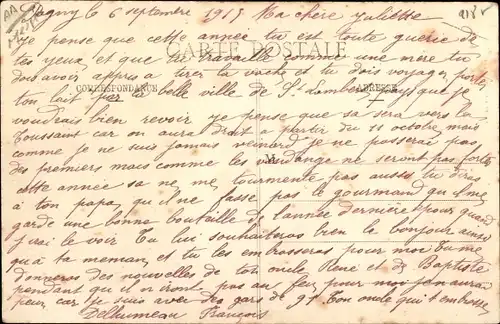 Lagny le 6 septembre 1915 Ma chère
Je pense que cette année tu est toute guérie de
CARTE POSTALE
tes yeux et que tu travaille comme une mère tu
dois avoir appris a tirer la vache et tu dois voyager porter
CORRESPONDANCE
ADRESSE
ton lait par la belle ville de St Lambert que je
voudrais bien revoir je pense que sa sera vers la
Toussaint car on aura droit a partir du 11 octobre mais
comme je ne suis jamais veinard je ne passerai pas
des premiers mais comme les vendange ne seront pas fortes
cette année sa ne me tourmente pas aussi tu diras
à ton papa qu il ne fasse pas le gourmand qu il me
garde une bonne bouteille de l'année dernière pour quand
j'irai le voir Tu lui souhaiteras bien le bonjour ainsi
qu'à ta meman et tu les embrasseras pour moi tu me
donneras des nouvelles de ton oncle René et de Baptiste
pendant qu il on iront pas au feu pour moi j'en aurai
peur car je suis avec des gars de 97 Ton oncle qui t'embrasse
Delhumeau François